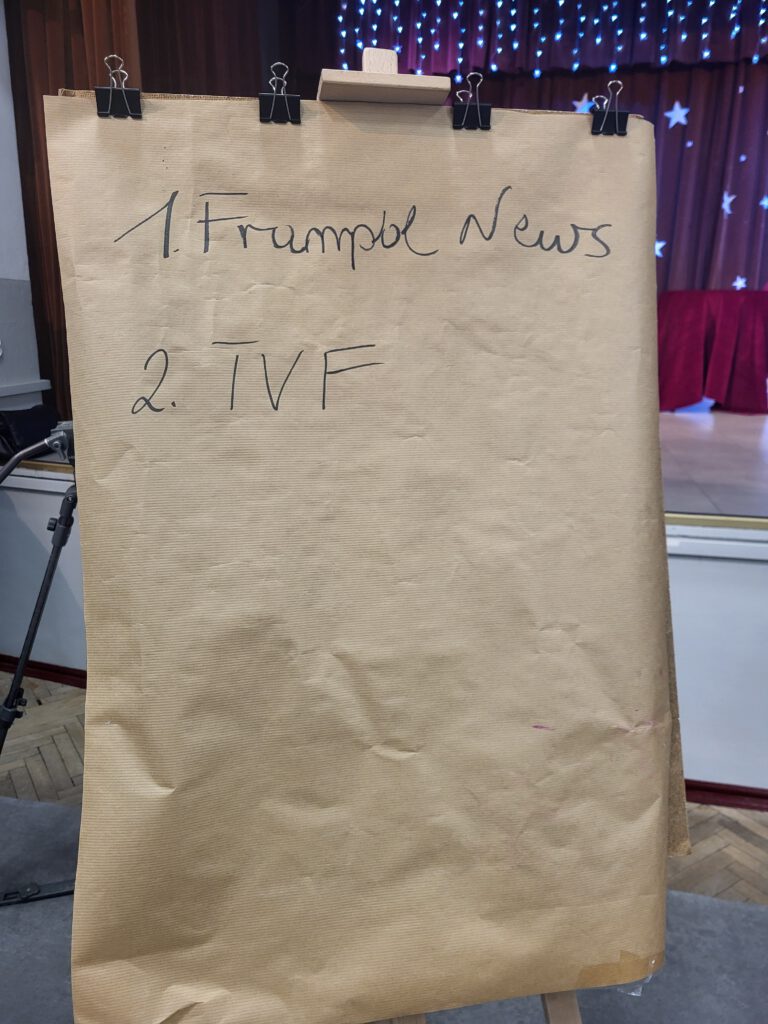 1. Frampol News
2. TVF